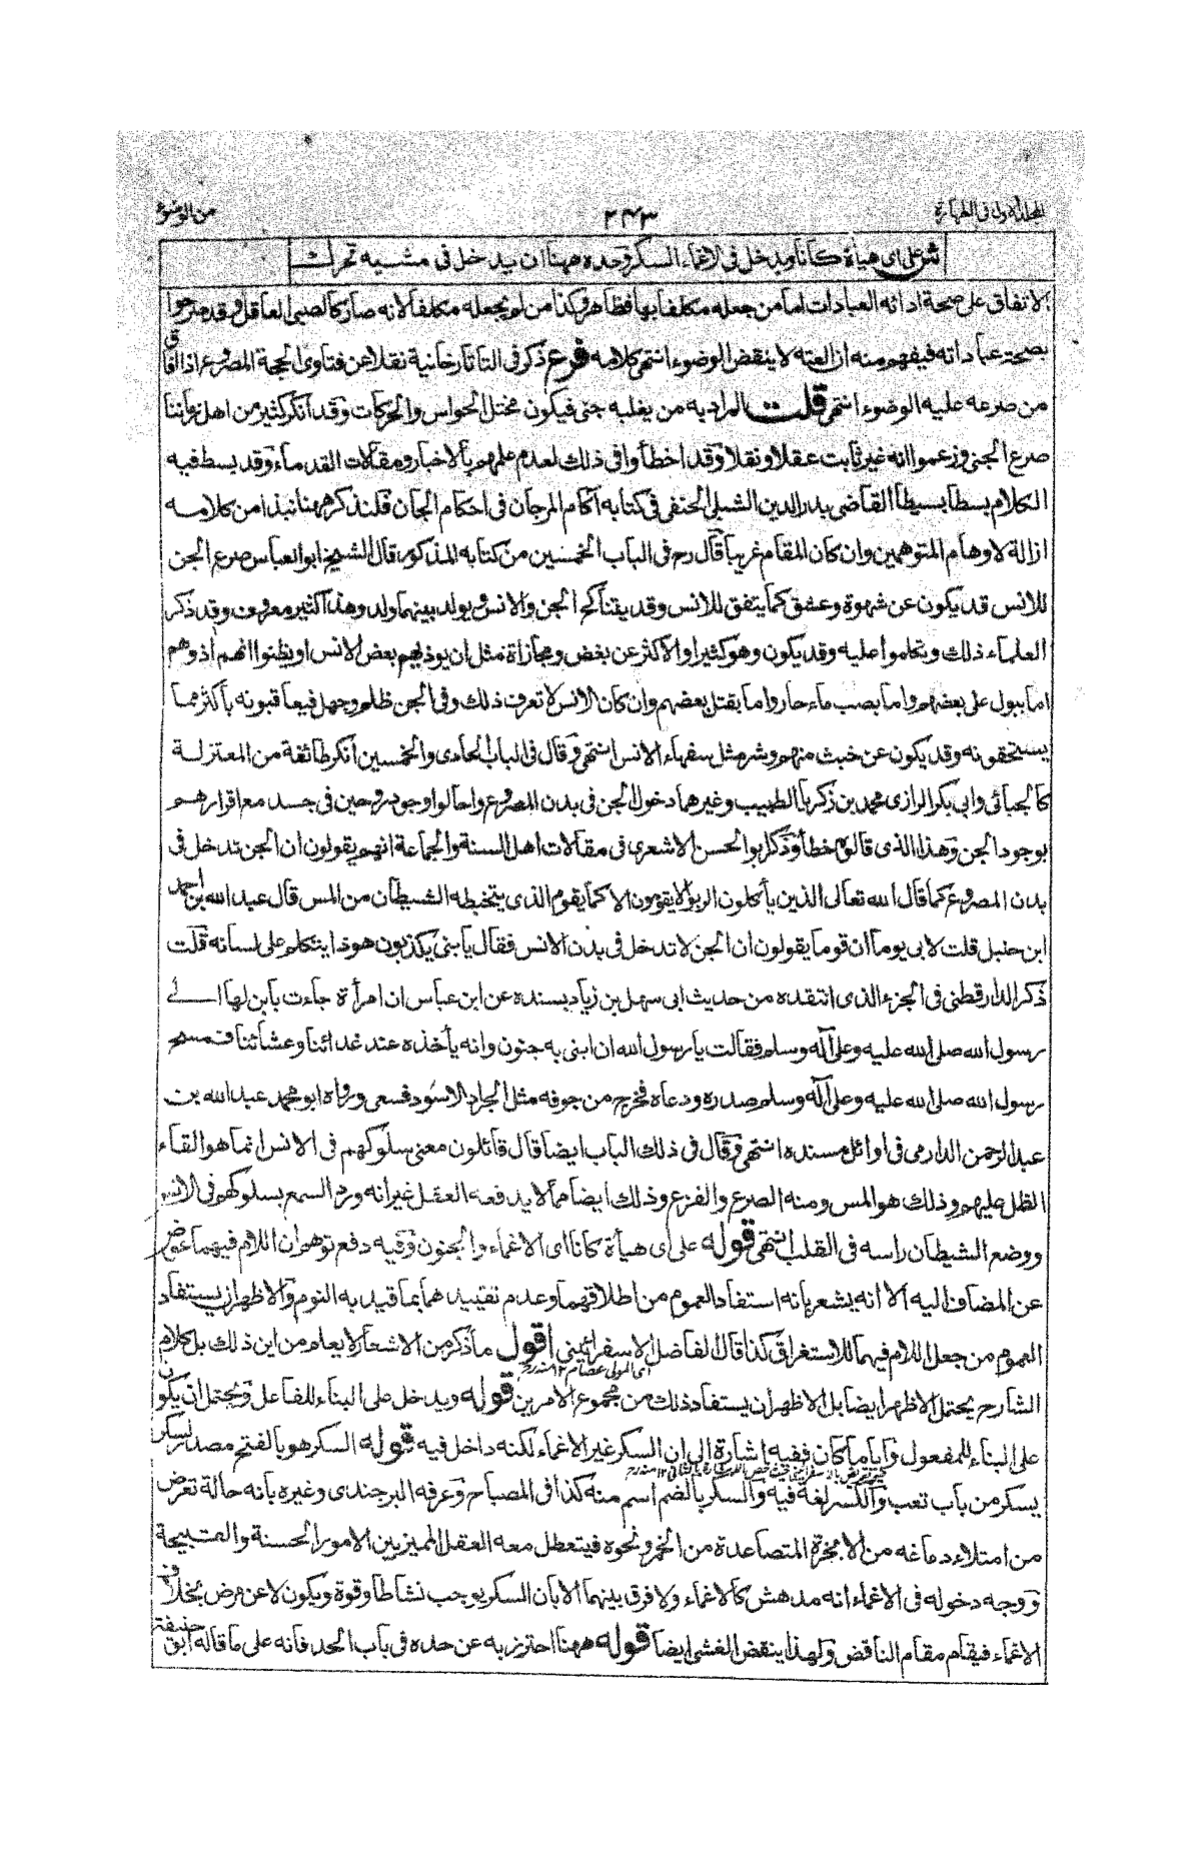 المجلد الاول فى الطهارة
٢٤٣
من الوضوء
ش على اى هيأة كانا ويدخل فى الاغماء السكر وحده ههنا ان يدخل فى مشيه تحرك
الاتفاق على صحة ادائه العبادات اما من جعله مكلفا بها فظاهر وكذا من لم يجعله مكلفا لانه صار كالصبى العاقل وقد صرحوا
بصحة عباداته فيفهم منه ان العته لا ينقض الوضوء انتهى كلامه فرع ذكر فى التاتارخانية نقلا عن فتاوى الحجة المصروع اذا افاق
من صرعه عليه الوضوء انتهى قلت المراد به من يغلبه جنى فيكون مختل الحواس والحركات وقد انكر كثير من اهل زماننا
صرع الجنى وزعموا انه غير ثابت عقلا ونقلا وقد اخطأوا فى ذلك لعدم علمهم بالاخبار ومقالات القدماء وقد بسط فيه
الكلام بسطا بسيطا القاضى بدر الدين الشبلى الحنفى فى كتابه آكام المرجان فى احكام الجان فلنذكر ههنا نبذا من كلامه
ازالة لاوهام المتوهمين وان كان المقام غريبا قال رح فى الباب الخمسين من كتابه المذكور قال الشيخ ابو العباس صرع الجن
للانس قد يكون عن شهوة وعشق كما يتفق للانس وقد يتناكح الجن والانس ويولد بينهما ولد وهذا كثير معروف وقد ذكر
العلماء ذلك وتكلموا عليه وقد يكون وهو كثير او الاكثر عن بغض ومجازاة مثل ان يوذيهم بعض الانس او يظنوا انهم اذوهم
اما ببول على بعضهم واما بصب ماء حار واما بقتل بعضهم وان كان الانس لا تعرف ذلك وفى الجن ظلم وجهل فيعاقبونه باكثر مما
يستحقونه وقد يكون عن خبث منهم وشر مثل سفهاء الانس انتهى وقال فى الباب الحادى والخمسين انكر طائفة من المعتزلة
كالجبائى وابى بكر الرازى محمد بن زكريا الطبيب وغيرهما دخول الجن فى بدن المصروع واحالوا وجود روحين فى جسد مع اقرارهم
بوجود الجن وهذا الذى قالوه خطأ وذكر ابو الحسن الاشعرى فى مقالات اهل السنة والجماعة انهم يقولون ان الجن تدخل فى
بدن المصروع كما قال الله تعالى الذين يأكلون الربوا لا يقومون الا كما يقوم الذى يتخبطه الشيطان من المس قال عبد الله بن احمد
ابن حنبل قلت لابى يوما ان قوما يقولون ان الجن لا تدخل فى بدن الانس فقال يا بنى يكذبون هو ذا يتكلم على لسانه قلت
ذكر الدارقطنى فى الجزء الذى انتقده من حديث ابى سهل بن زياد بسنده عن ابن عباس ان امرأة جاءت بابن لها الى
رسول الله صلى الله عليه وعلى آله وسلم فقالت يا رسول الله ان ابنى به جنون وانه يأخذه عند غدائنا وعشائنا فمسح
رسول الله صلى الله عليه وعلى آله وسلم صدره ودعاه فخرج من جوفه مثل الجراد الاسود فسعى ورواه ابو محمد عبد الله بن
عبد الرحمن الدارمى فى اوائل مسنده انتهى وقال فى ذلك الباب ايضا قال قائلون معنى سلوكهم فى الانس انما هو القاء
الظل عليهم وذلك هو المس ومنه الصرع والفزع وذلك ايضا مما لا يدفعه العقل غير انه ورد السمع بسلوكهم فى الانس
ووضع الشيطان راسه فى القلب انتهى قوله على اى هيأة كانا اى الاغماء والجنون وفيه دفع توهم ان اللام فيهما عوض
عن المضاف اليه الا انه يشعر بانه استفاد العموم من اطلاقهما وعدم تقييدهما بما قيد به النوم والاظهر ان يستفاد
العموم من جعل اللام فيهما للاستغراق كذا قال الفاضل الاسفرائنى اقول ما ذكر من الاشعار لا يعلم من اين ذلك بل كلام
اى المولى عصام ١٢ منه رح
الشارح يحتمل الاظهر ايضا بل الاظهر ان يستفاد ذلك من مجموع الامرين قوله ويدخل على البناء للفاعل ويحتمل ان يكون
على البناء للمفعول وايا ما كان ففيه اشارة الى ان السكر غير الاغماء لكنه داخل فيه قوله السكر هو بالفتح مصدر سكر
يسكر من باب تعب والكسر لغة فيه والسكر بالضم اسم منه كذا فى المصباح وعرفه البرجندى وغيره بانه حالة تعرض
من امتلاء دماغه من الابخرة المتصاعدة من الخمر ونحوه فيتعطل معه العقل المميز بين الامور الحسنة والقبيحة
ووجه دخوله فى الاغماء انه مدهش كالاغماء ولا فرق بينهما الا بان السكر يوجب نشاطا وقوة ويكون لا عن مرض بخلاف
الاغماء فيقام مقام الناقض ولهذا ينقض الغشى ايضا قوله ههنا احترز به عن حده فى باب الحد فانه على ما قاله ابو حنيفة